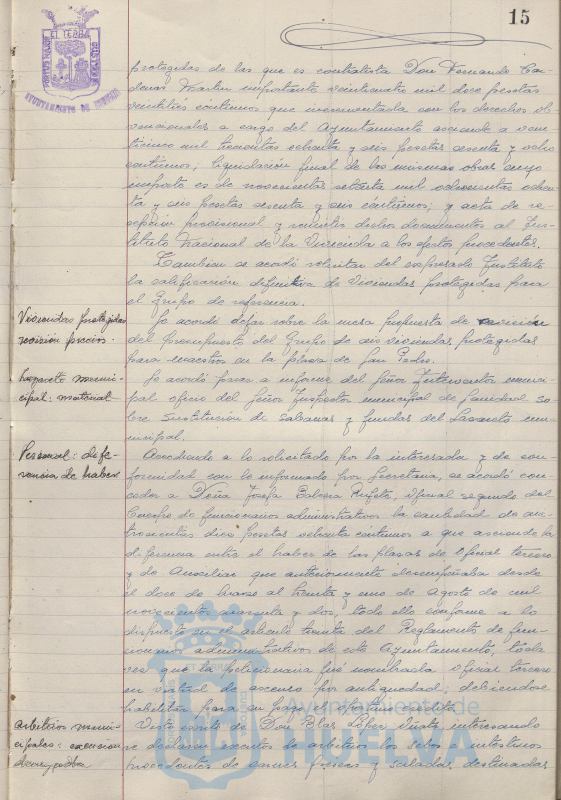 15
AYUNTAMIENTO DE
protegidas de las que es contratista Don Fernando
denas Martin importante veintiun mil doce pesetas
veintitres céntimos que incrementada con los derechos ob-
vencionales a cargo del Ayuntamiento asciende a vein
ticinco mil trescientas ochenta y seis pesetas sesenta y ocho
céntimos; liquidación final de las mismas obras cuyo
importe es de novecientas setenta mil ochocientas ochen
ta y seis pesetas sesenta y seis céntimos; y acta de re-
cepción provisional y remitir dichos documentos al Ins-
tituto Nacional de la Vivienda a los efectos procedentes.
Tambien se acordó solicitar del expresado Instituto
la calificación definitiva de Viviendas protegidas para
el Grupo de referencia.
Viviendas protegidas
revisión precios.
Se acordó dejar sobre la mesa propuesta de revisión
del presupuesto del Grupo de seis viviendas protegidas
para maestros en la plaza de San Pedro.
Lazareto munici-
pal: material
Se acordó pasar a informe del Señor Interventor munici-
pal oficio del Señor Inspector municipal de Sanidad so-
bre sustitución de sabanas y fundas del Lazareto mu-
nicipal.
Personal: dife-
rencia de haber
Accediendo a lo solicitado por la interesada y de con-
formidad con lo informado por Secretaria, se acordó con-
ceder a Doña Josefa oficial segundo del
Cuerpo de funcionarios administrativos la cantidad de cua-
trocientas diez pesetas ochenta céntimos a que asciende la
diferencia entre el haber de las plazas de Oficial tercero
y de Auxiliar que anteriormente desempeñaba desde
el doce de Marzo al treinta y uno de Agosto de mil
novecientos cuarenta y dos, todo ello conforme a lo
dispuesto en el artículo treinta del Reglamento de fun-
cionarios administrativos de este Ayuntamiento, toda
vez que la peticionaria fué nombrada oficial tercero
en virtud de ascenso por antigüedad; debiendose
habilitar para su pago el oportuno crédito.
arbitrios muni-
cipales: exencion
Visto escrito de Don Blas interesando
se declaren exentos de arbitrios los sebos e intestinos
procedentes de carnes frescas y saladas destinadas
Ayuntamiento de
HUELVA